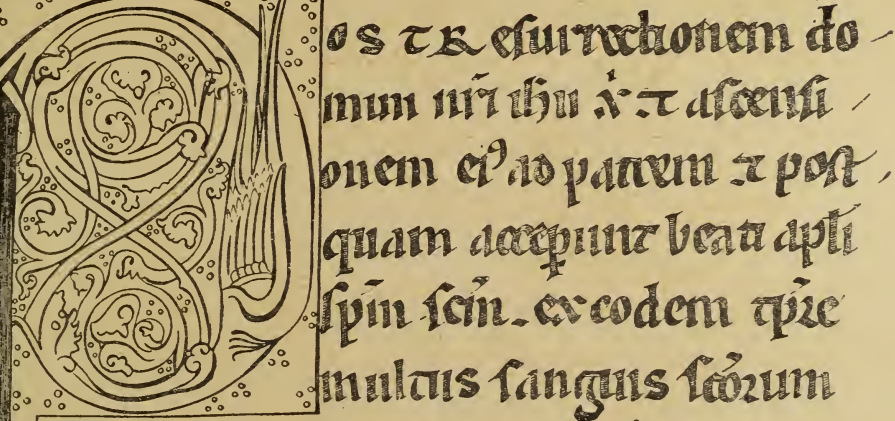 POSTResurrectionem do-
mini nr̄i ih̄u x̄ ⁊ ascensi-
onem ei⁹ ad patrem ⁊ post-
quam acceꝑunt beati apl̄i
sp̄m sc̄m. ex eodem tp̄re
multus sanguis sc̄orum